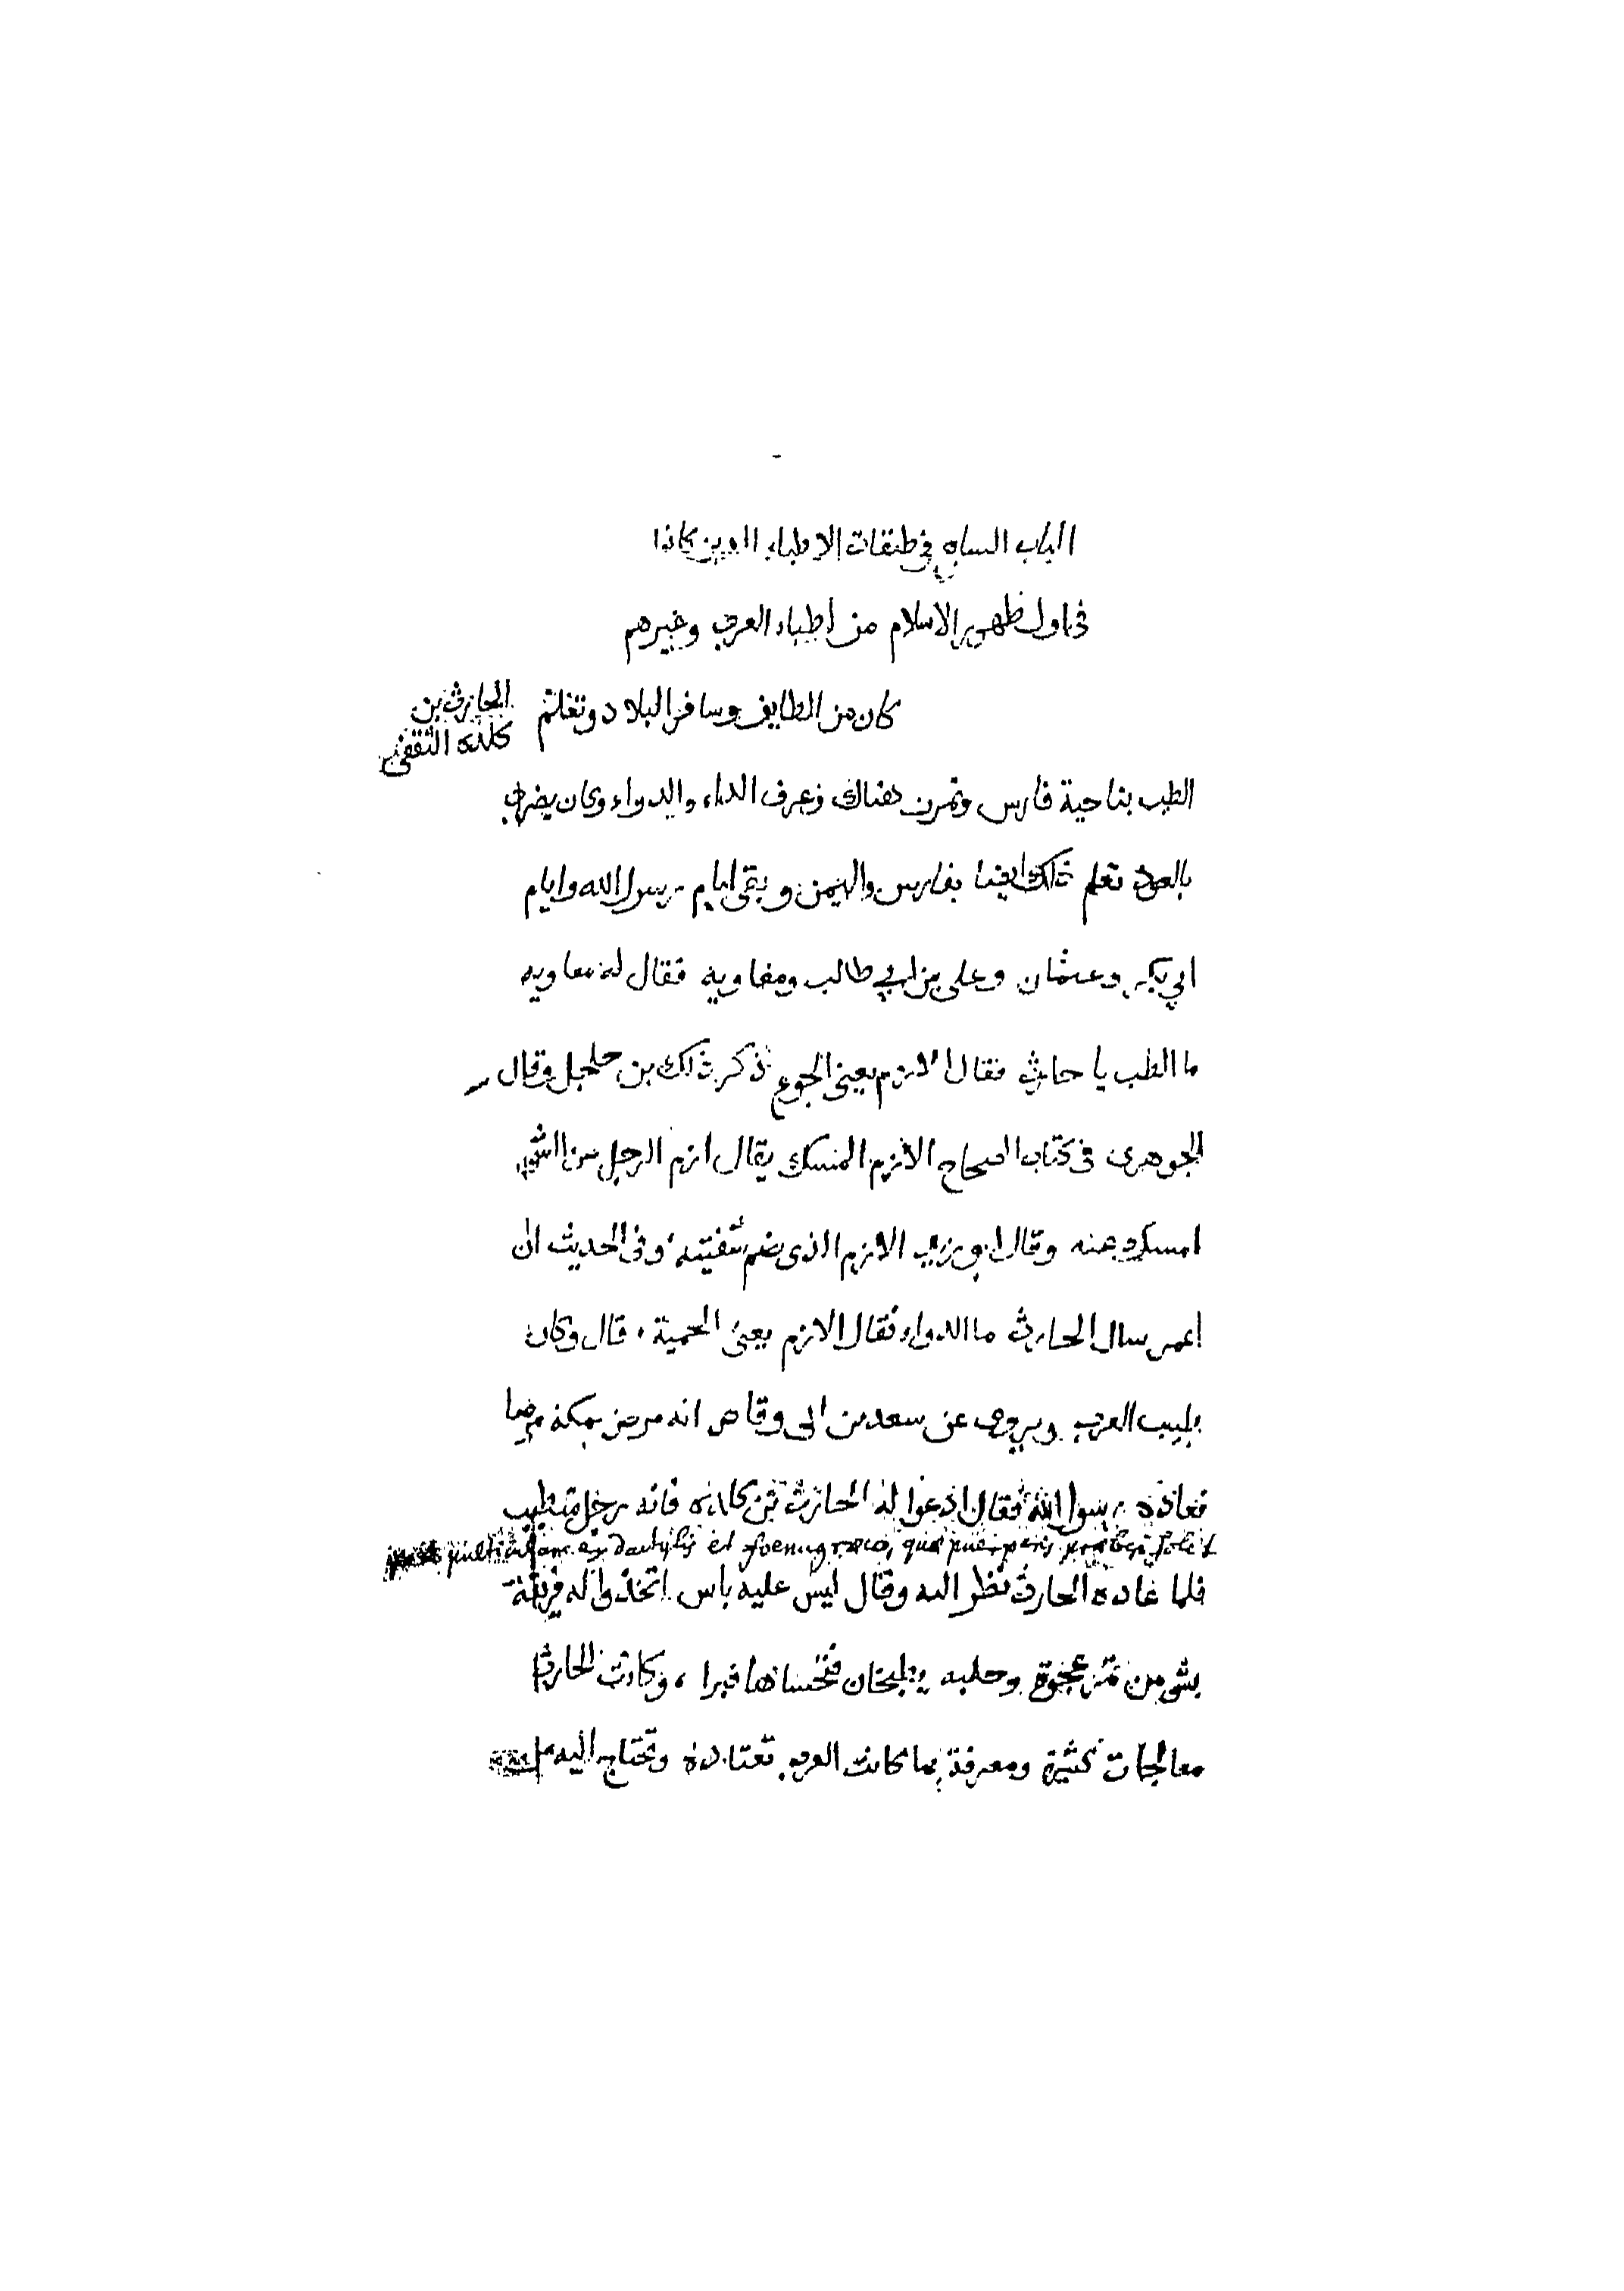 الباب السابع في طبقات الاطباء الدين كانوا
في اول ظهور الاسلام من اطباء العرب وغيرهم
الحارث بن
كلده الثقفي
كان من الطايف وسافر البلاد وتعلم
الطب بناحية فارس وتمرن هناك وعرف الداء والدواء وكان يضرب
بالعود تعلم ذلك ايضا بفارس واليمن وبقى ايام رسول الله وايام
ابي بكر وعثمان وعلى بن ابي طالب ومعاوية فقال له معاويه
ما الطب يا حارث فقال الازم يعنى الجوع ذكر ذلك بن جلجل وقال
الجوهرى في كتاب الصحاح الازم المسك يقال ازم الرجل عن الشى
امسك عنه وقال ابو زيد الازم الذى يضم شفتيه وفى الحديث ان
عمر سال الحارث ما الدواء فقال الازم يعنى الحمية ، قال وكان
طبيب العرب ويروى عن سعد بن ابى وقاص انه مرض بمكة مرضا
فعاده رسول الله فقال ادعوا له الحارث بن كلده فانه رجل متطبب
ex dactylis et foenugraeco, quae puerperis praeberi solet
فلما عاده الحارث نظر اليه وقال ليس عليه باس اتخذوا له فريقة
بشى من تمر عجوة وحلبه يطبخان فتحساها فبرا ، وكانت للحارث
معالجات كثيرة ومعرفة بما كانت العرب تعتاده وتحتاج اليه